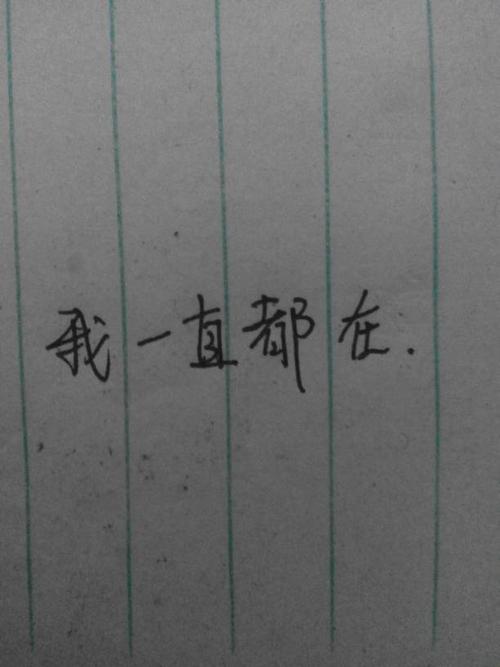 我一直都在.